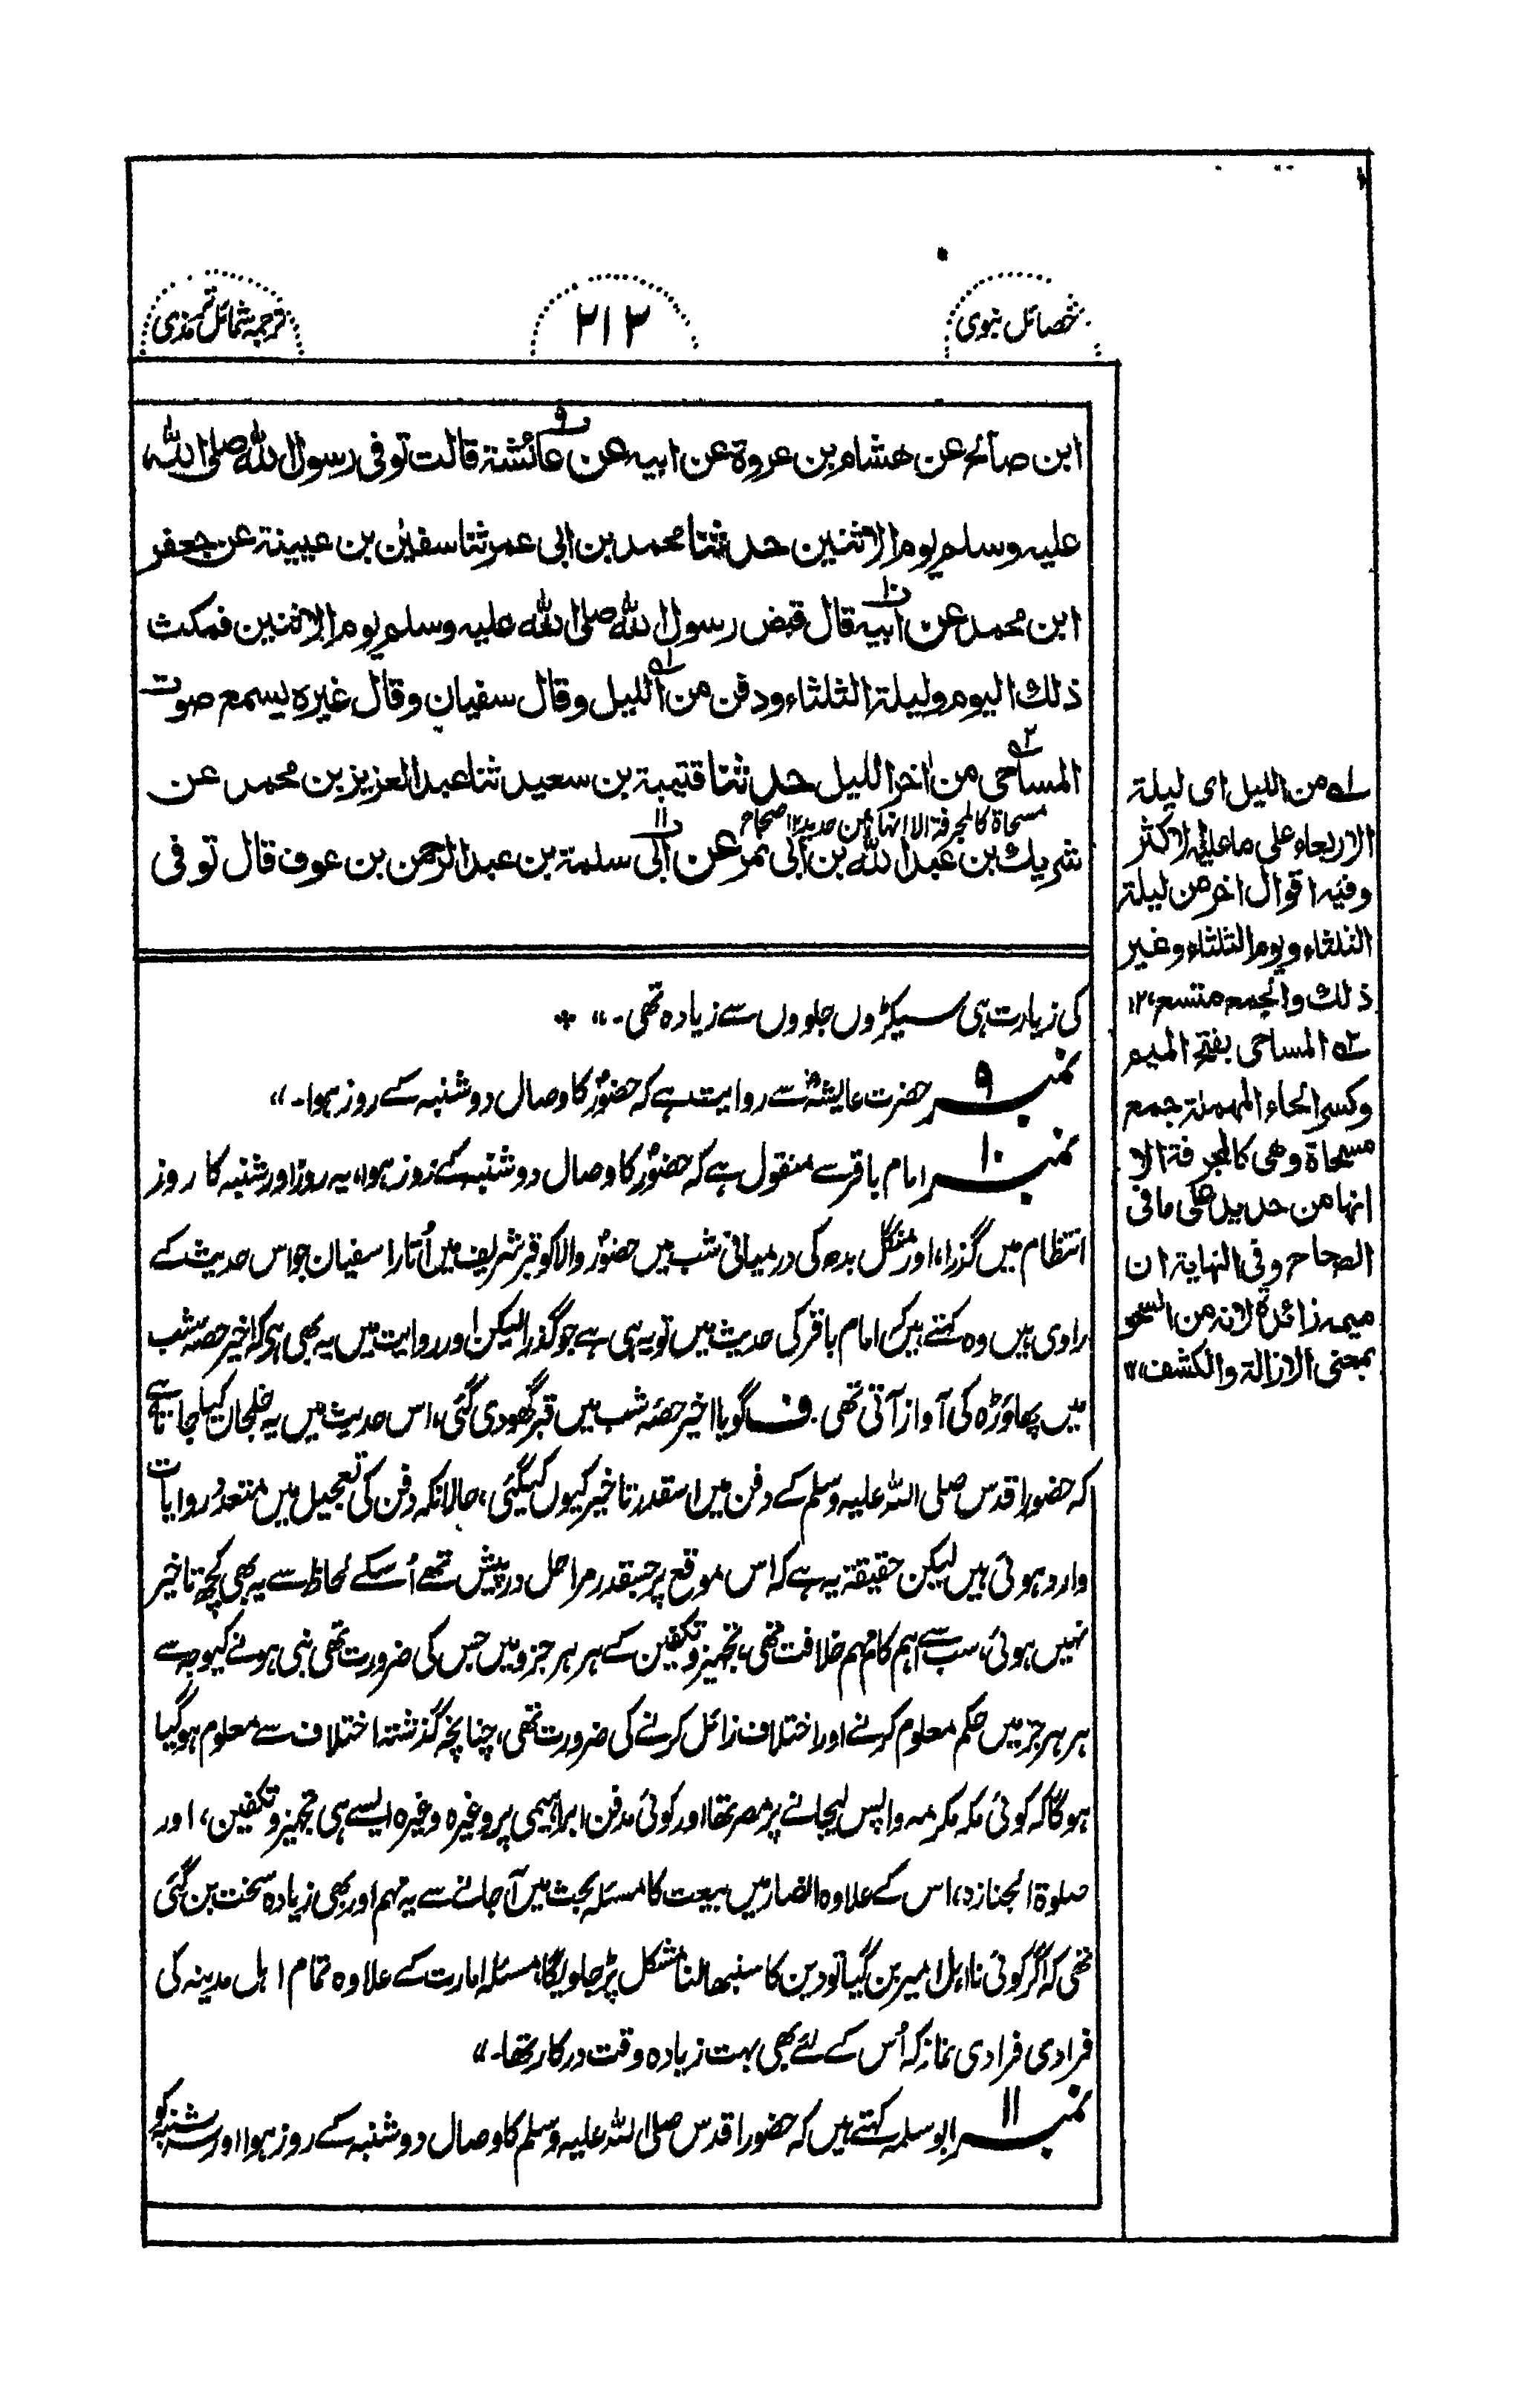 خصائل نبوی
۲۱۲
ترجمہ شمائل ترمذی
ابن صالح عن ھشام بن عروۃ عن ابیہ عن عائشۃ قالت توفی رسول اللہ صلی اللہ
۹
علیہ وسلم یوم الاثنین حدثنا محمد بن ابی عمر ثنا سفیٰن بن عیینۃ عن جعفر
ابن محمد عن ابیہ قال قبض رسول اللہ صلی اللہ علیہ وسلم یوم الاثنین فمکث
۱۰
ذلك الیوم ولیلۃ الثلثاء ودفن من اللیل وقال سفیان وقال غیرہ یسمع صوت
۱
المساحی من اٰخر اللیل حدثنا قتیبۃ بن سعید ثنا عبد العزیز بن محمد عن
۲
مسحاۃ کالمجرفۃ الا انہا من حدید ۱۲ صحاح
شریك بن عبد اللہ بن ابی نمر عن ابی سلمۃ بن عبد الرحمن بن عوف قال توفی
۱۱
کی زیارت ہی سیکڑوں جلووں سے زیادہ تھی۔ ‟
نمبر ۹ حضرت عایشہؓ سے روایت ہے کہ حضورؐ کا وصال دوشنبہ کے روز ہوا۔ ‟
نمبر ۱۰ امام باقر سے منقول ہے کہ حضورؐ کا وصال دوشنبہ کے روز ہوا، یہ روز اور شنبہ کا روز
انتظام میں گذرا، اور منگل بدھ کی درمیانی شب میں حضورؐ والا کو قبر شریف میں اُتارا سفیان جو اس حدیث کے
راوی ہیں وہ کہتے ہیں کہ امام باقر کی حدیث میں تو یہ ہی ہے جو گذرا لیکن اور روایت میں یہ بھی ہی کہ اخیر حصہ شب
میں پھاوڑہ کی آواز آتی تھی۔ ف گویا اخیر حصہ شب میں قبر گھودی گئی، اس حدیث میں یہ خلجان کیا جاتا ہے
کہ حضور اقدس صلی اللہ علیہ وسلم کے دفن میں اسقدر تاخیر کیوں کیگئی، حالانکہ دفن کی تعجیل میں متعدد روایات
وارد ہوئی ہیں لیکن حقیقۃ یہ ہے کہ اس موقع پر جسقدر مراحل درپیش تھے اُسکے لحاظ سے یہ بھی کچھ تاخیر
نہیں ہوئی، سب سے اہم کام مہم خلافت تھی، تجہیز وتکفین کے ہر ہر جزو میں جس کی ضرورت تھی نبی ہونے کیوجہ سے
ہر ہر جز میں حکم معلوم کرنے اور اختلاف زائل کرنے کی ضرورت تھی، چنانچہ گذشتہ اختلاف سے معلوم ہو گیا
ہوگا کہ کوئی مکہ مکرمہ واپس لیجانے پر مصر تھا اور کوئی مدفن ابراہیمی پر وغیرہ وغیرہ ایسے ہی تجہیز وتکفین، اور
صلوۃ الجنازہ، اس کے علاوہ انصار میں بیعت کا مسئلہ بحث میں آجانے سے یہ مہم اور بھی زیادہ سخت بن گئی
تھی کہ اگر کوئی نا اہل امیر بن گیا تو دین کا سنبھالنا مشکل پڑ جاویگا، مسئلہ امارت کے علاوہ تمام اہل مدینہ کی
فرادی فرادی نماز کہ اُس کے لئے بھی بہت زیادہ وقت درکار تھا۔ ‟
نمبر ۱۱ ابوسلمہ کہتے ہیں کہ حضور اقدس صلی اللہ علیہ وسلم کا وصال دوشنبہ کے روز ہوا اور سہ شنبہ کو
۱ہ من اللیل ای لیلۃ
الاربعاء علی ما علیہ الاکثر
وفیہ اقوال اخر من لیلۃ
الثلثاء ویوم الثلثاء وغیر
ذلك والجمع متسع، ۱۲
۲ہ المساحی بفتح المیم
وکسر الحاء المہملۃ جمع
مسحاۃ وھی کالمجرفۃ الا
انہا من حدید علی ما فی
الصحاح وفی النہایۃ ان
میمہ زائدۃ لانہ من السحو
بمعنی الازالۃ والکشف، ۱۲